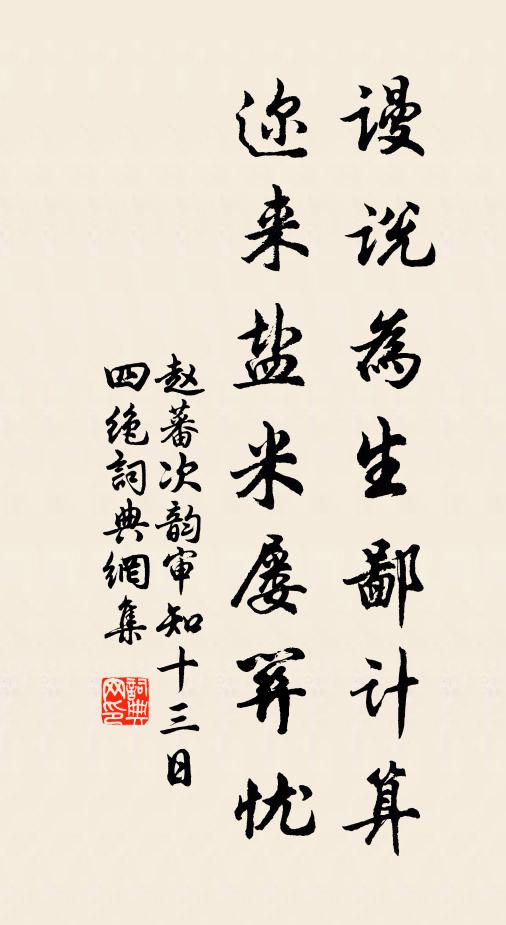 谩说為生鄙计算
迩来盐米屡忧
赵蕃次韵审知十三日
四绝詞典網集
詞典
网印